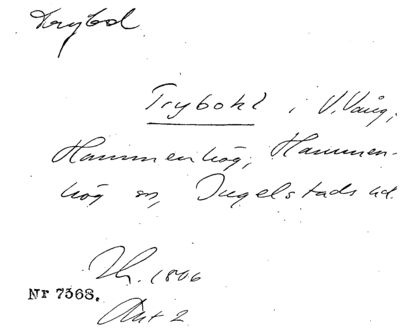 Trybod
Trybokl i V. Vång,
Hammenhög, Hammen-
hög sn, Ingelstads hd.
Th. 1806
Nr 7368.
Akt 2